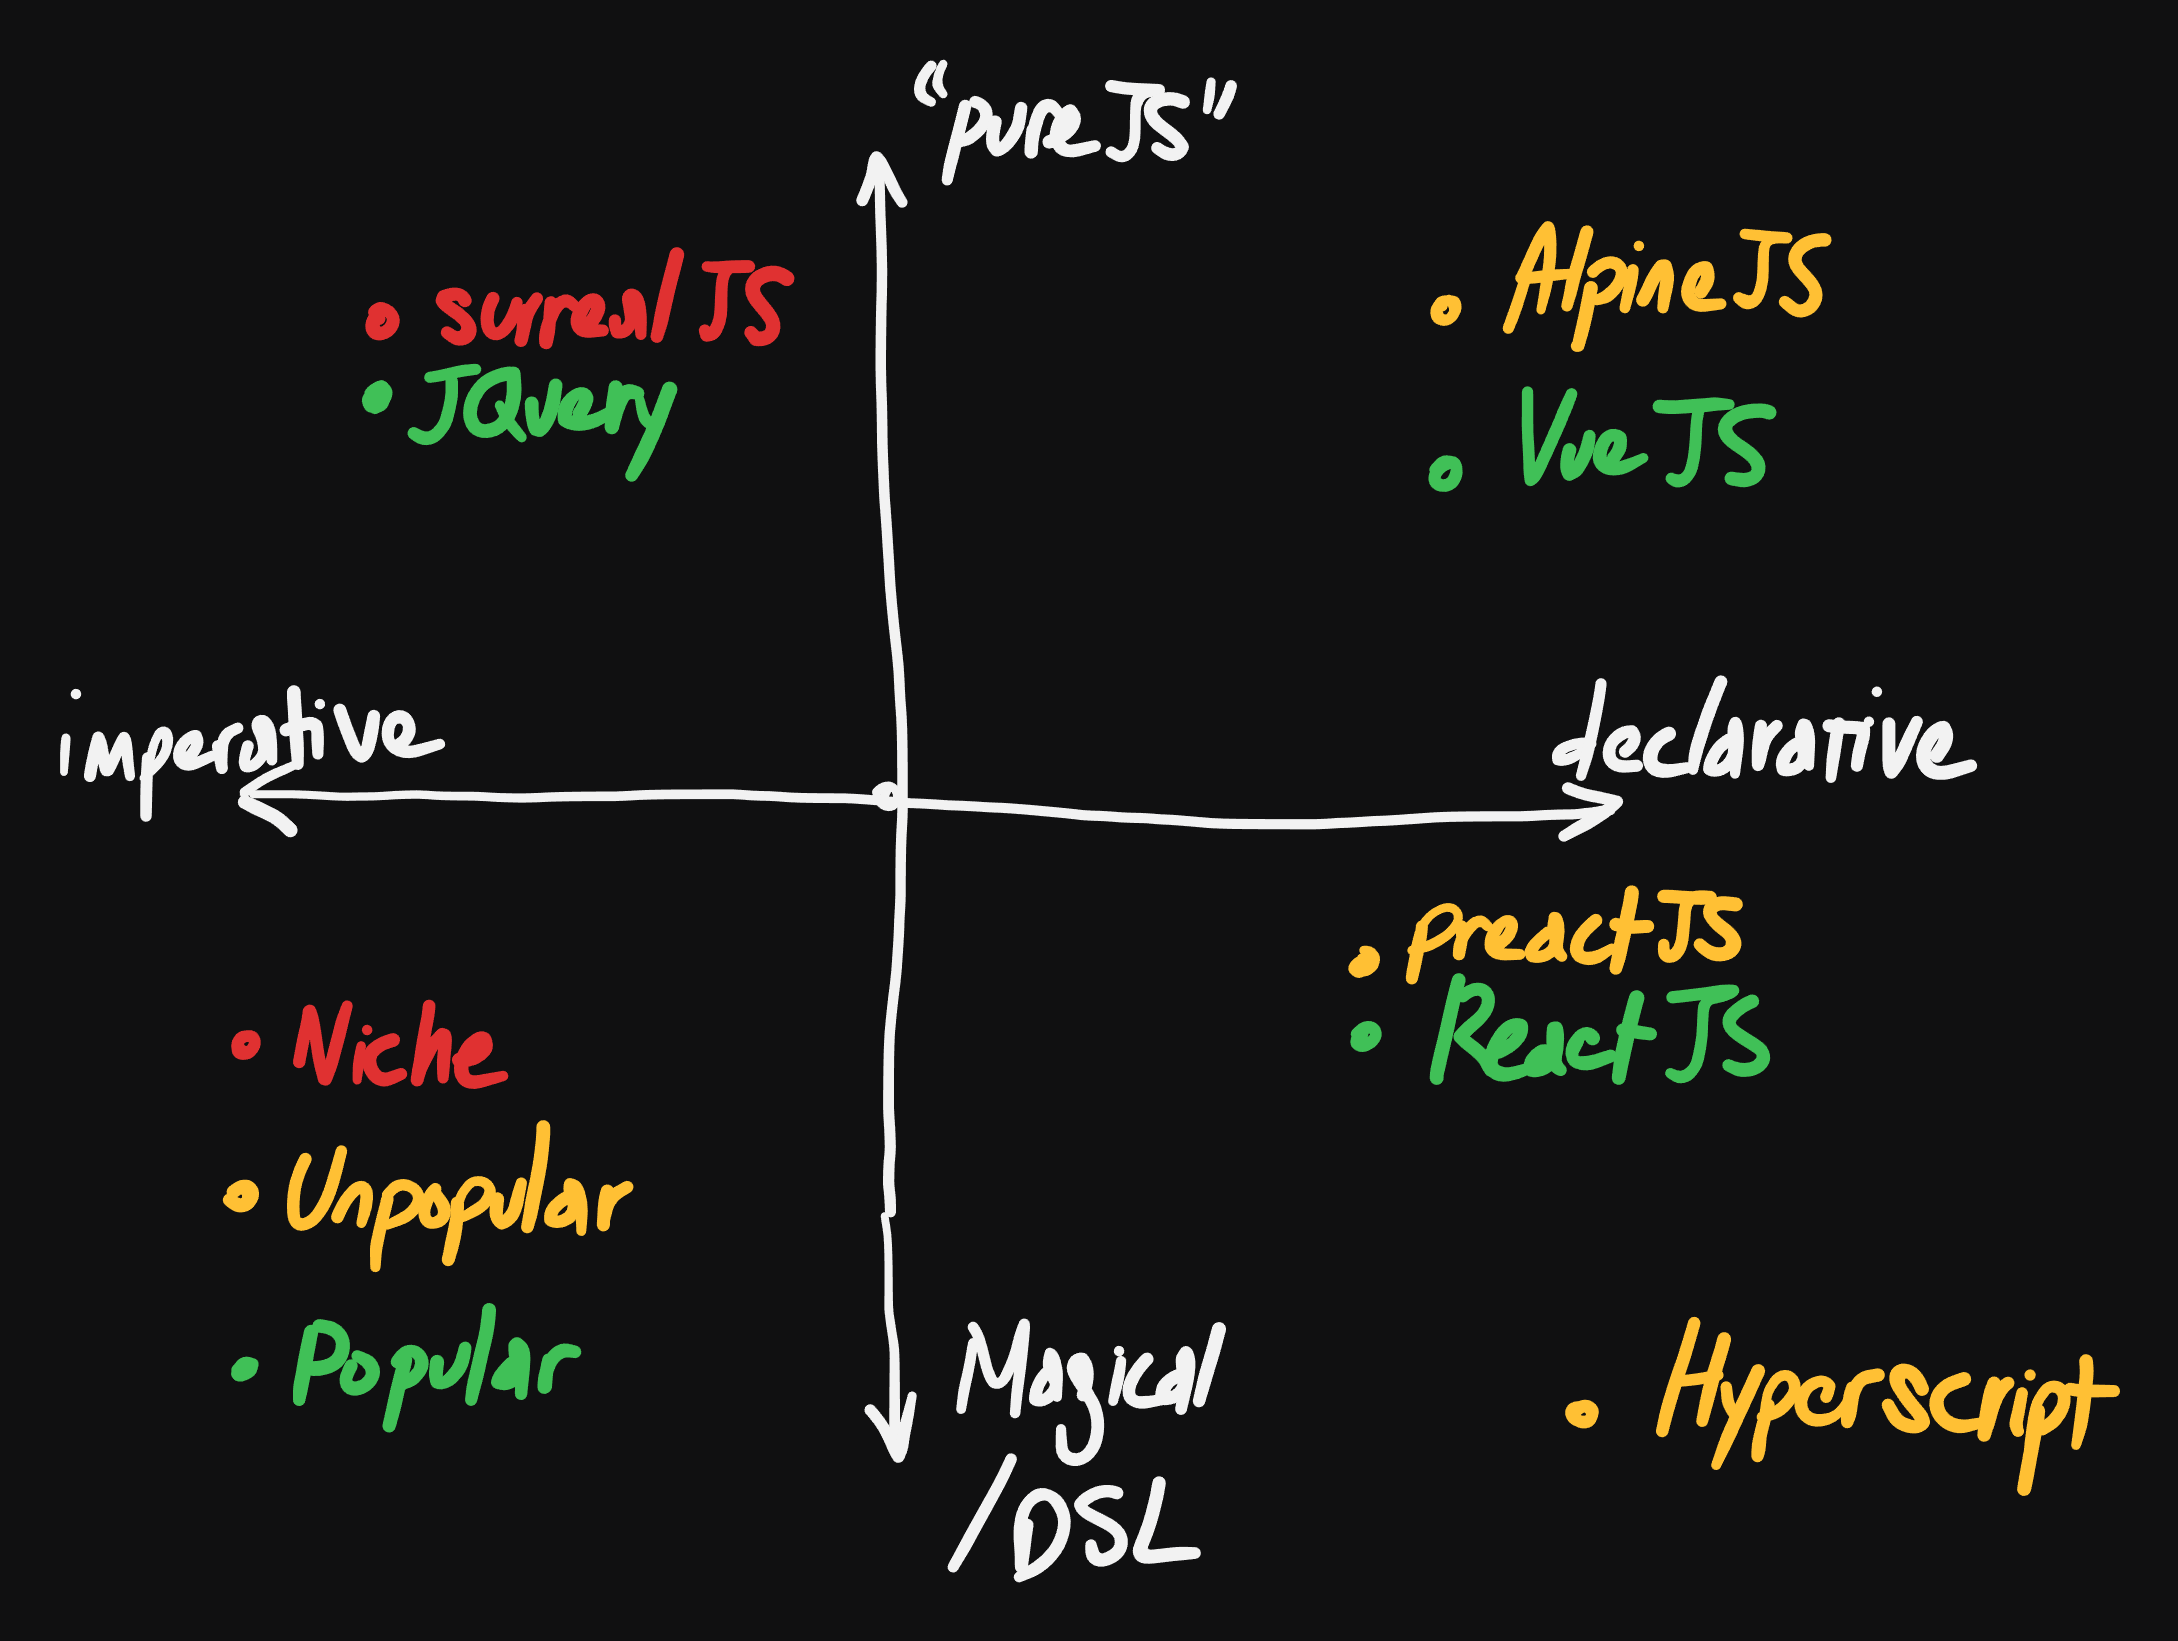 "pureJS"
surrealJS
JQuery
AlpineJS
VueJS
imperative
declarative
preactJS
ReactJS
Niche
Unpopular
Popular
Magical
/DSL
HyperScript